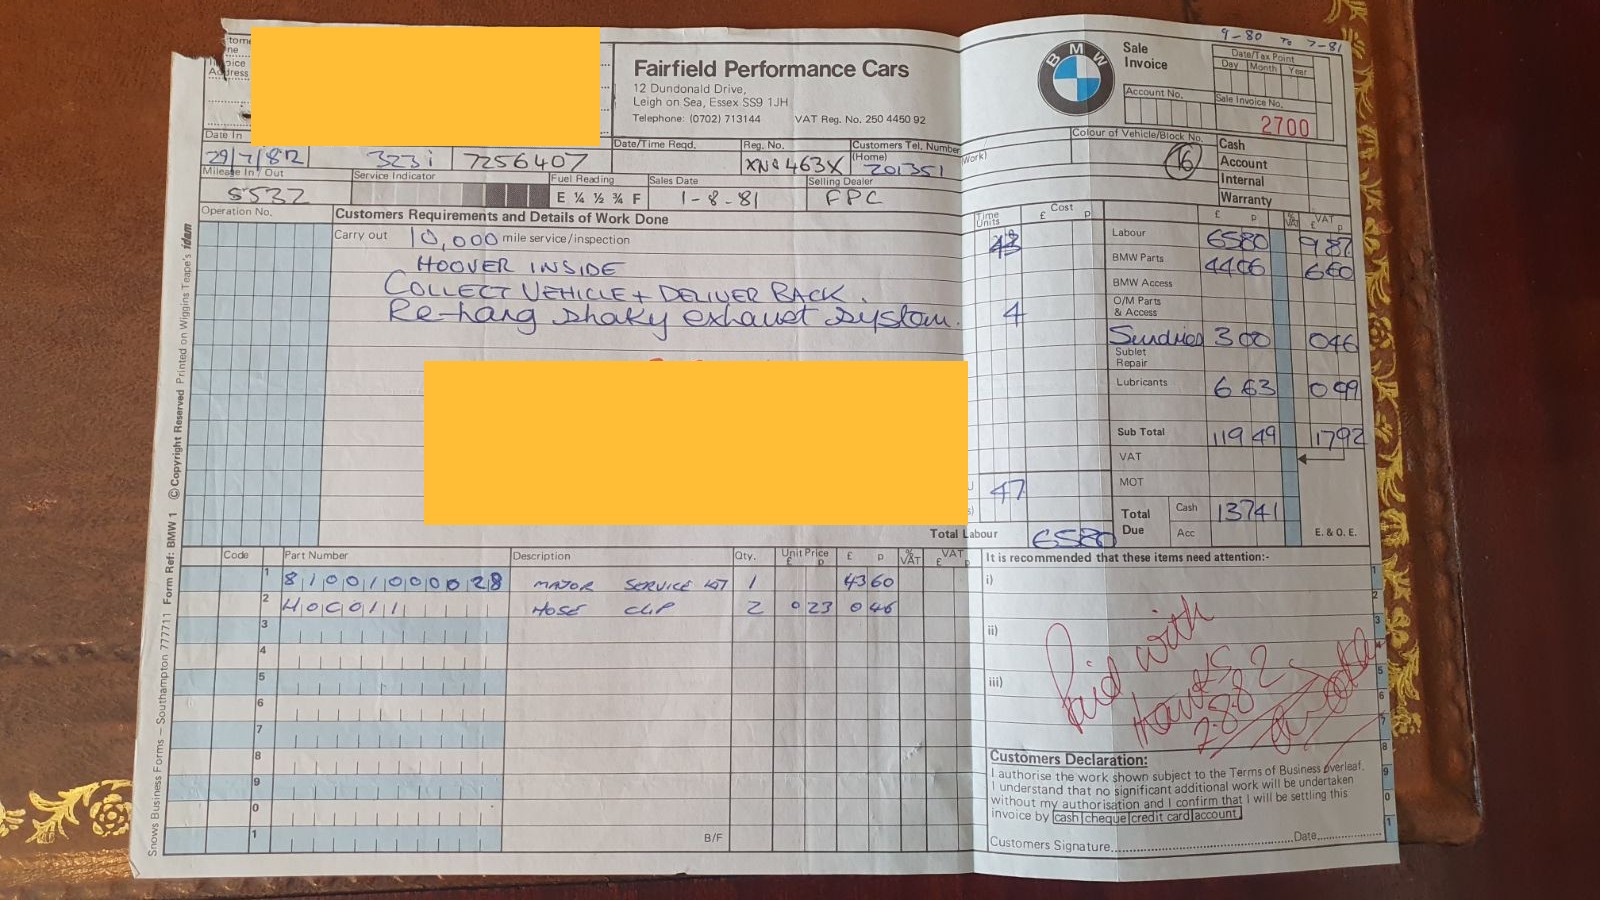 9-80 To 7-81
Fairfield Performance Cars
12 Dundonald Drive,
Leigh on Sea, Essex SS9 1JH
Telephone: (0702) 713144 VAT Reg. No. 250 4450 92
BMW
Sale
Invoice
Date/Tax Point
Day Month Year
Account No.
Sale Invoice No.
2700
Address
Date In
29/7/82 323i 7256407
Date/Time Reqd.
Reg. No.
XNO 463X
Customers Tel. Number
(Home)
201351
(Work)
Colour of Vehicle/Block No.
16
Cash
Account
Internal
Warranty
Mileage In/Out
5532
Service Indicator
Fuel Reading
E ¼ ½ ¾ F
Sales Date
1-8-81
Selling Dealer
FPC
Operation No.
Customers Requirements and Details of Work Done
Time Units
Cost
£ p
Carry out 10,000 mile service/inspection 43
HOOVER INSIDE
COLLECT VEHICLE + DELIVER BACK.
Re-hang shaky exhaust system. 4
47
Total Labour 6580
£ p % VAT VAT £ p
Labour 6580 987
BMW Parts 4406 660
BMW Access
O/M Parts & Access
Sundries 300 046
Sublet Repair
Lubricants 663 099
Sub Total 119 49 1792
VAT
MOT
Total Due Cash 13741
Acc
E. & O. E.
Code Part Number Description Qty. Unit Price £ p £ p % VAT VAT £ p
1 81001000028 MAJOR SERVICE KIT 1 4360
2 HOC011 HOSE CLIP 2 0 23 0 46
3
4
5
6
7
8
9
0
1
B/F
It is recommended that these items need attention:-
i)
ii)
iii)
1
2
3
4
5
6
7
8
9
0
1
Paid with
2.8.82
Customers Declaration:
I authorise the work shown subject to the Terms of Business overleaf.
I understand that no significant additional work will be undertaken
without my authorisation and I confirm that I will be settling this
invoice by cash cheque credit card account
Customers Signature Date
Snows Business Forms – Southampton 777711 Form Ref: BMW 1 © Copyright Reserved Printed on Wiggins Teape's idem